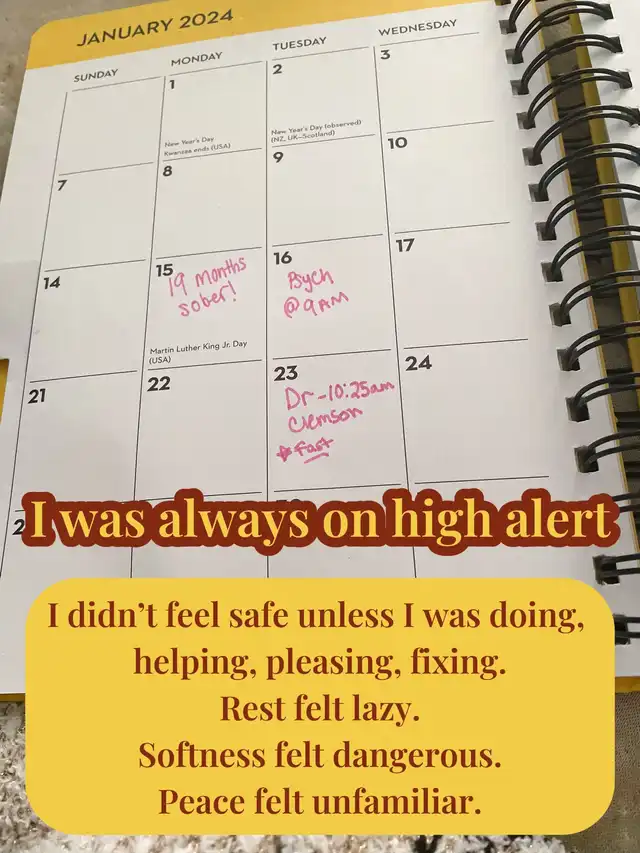 JANUARY 2024
SUNDAY
MONDAY
TUESDAY
WEDNESDAY
1
New Year's Day
Kwanzaa ends (USA)
2
New Year's Day (observed)
(NZ, UK–Scotland)
3
7
8
9
10
14
15
19 months
sober!
Martin Luther King Jr. Day
(USA)
16
Psych
@9AM
17
21
22
23
Dr - 10:25am
Clemson
Fast
24
I was always on high alert
I didn't feel safe unless I was doing,
helping, pleasing, fixing.
Rest felt lazy.
Softness felt dangerous.
Peace felt unfamiliar.